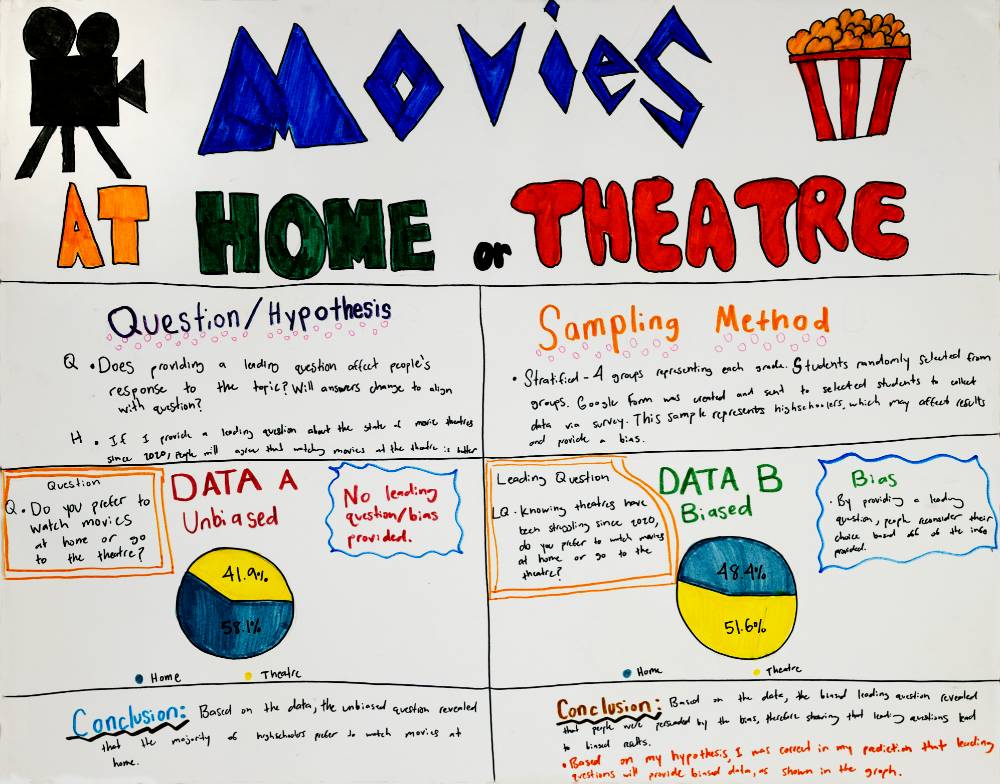 MOVIES
AT HOME or THEATRE
Question/Hypothesis
Q • Does providing a leading question affect people's
response to the topic? Will answers change to align
with question?
H • If I provide a leading question about the state of movie theatres
since 2020, people will agree that watching movies at the theatre is better
Sampling Method
• Stratified - 4 groups representing each grade. Students randomly selected from
groups. Google form was created and sent to selected students to collect
data via survey. This sample represents highschoolers, which may affect results
and provide a bias.
Question
Q. • Do you prefer to
watch movies
at home or go
to the theatre?
DATA A
Unbiased
No leading
question/bias
provided.
41.9%
58.1%
Home
Theatre
Leading Question
LQ • Knowing theatres have
been struggling since 2020,
do you prefer to watch movies
at home or go to the
theatre?
DATA B
Biased
Bias
• By providing a leading
question, people reconsider their
choice based off of the info
provided.
48.4%
51.6%
Home
Theatre
Conclusion: Based on the data, the unbiased question revealed
that the majority of highschoolers prefer to watch movies at
home.
Conclusion: Based on the data, the biased leading question revealed
that people were persuaded by the bias, therefore showing that leading questions lead
to biased results.
• Based on my hypothesis, I was correct in my prediction that leading
questions will provide biased data, as shown in the graph.